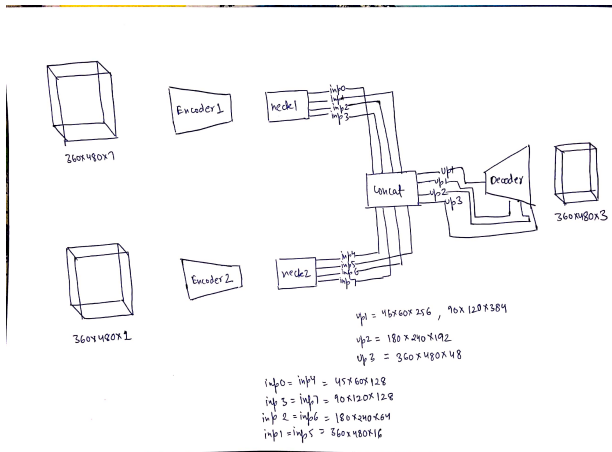 360x480x7
Encoder1
neck1
inp0
inp1
inp2
inp3
Concat
up1
up2
up3
Decoder
360x480x3
360x480x1
Encoder2
neck2
inp4
inp5
inp6
up1 = 45x60x256 , 90x120x384
up2 = 180x240x192
up3 = 360x480x48
inp0 = inp4 = 45x60x128
inp3 = inp7 = 90x120x128
inp2 = inp6 = 180x240x64
inp1 = inp5 = 360x480x16